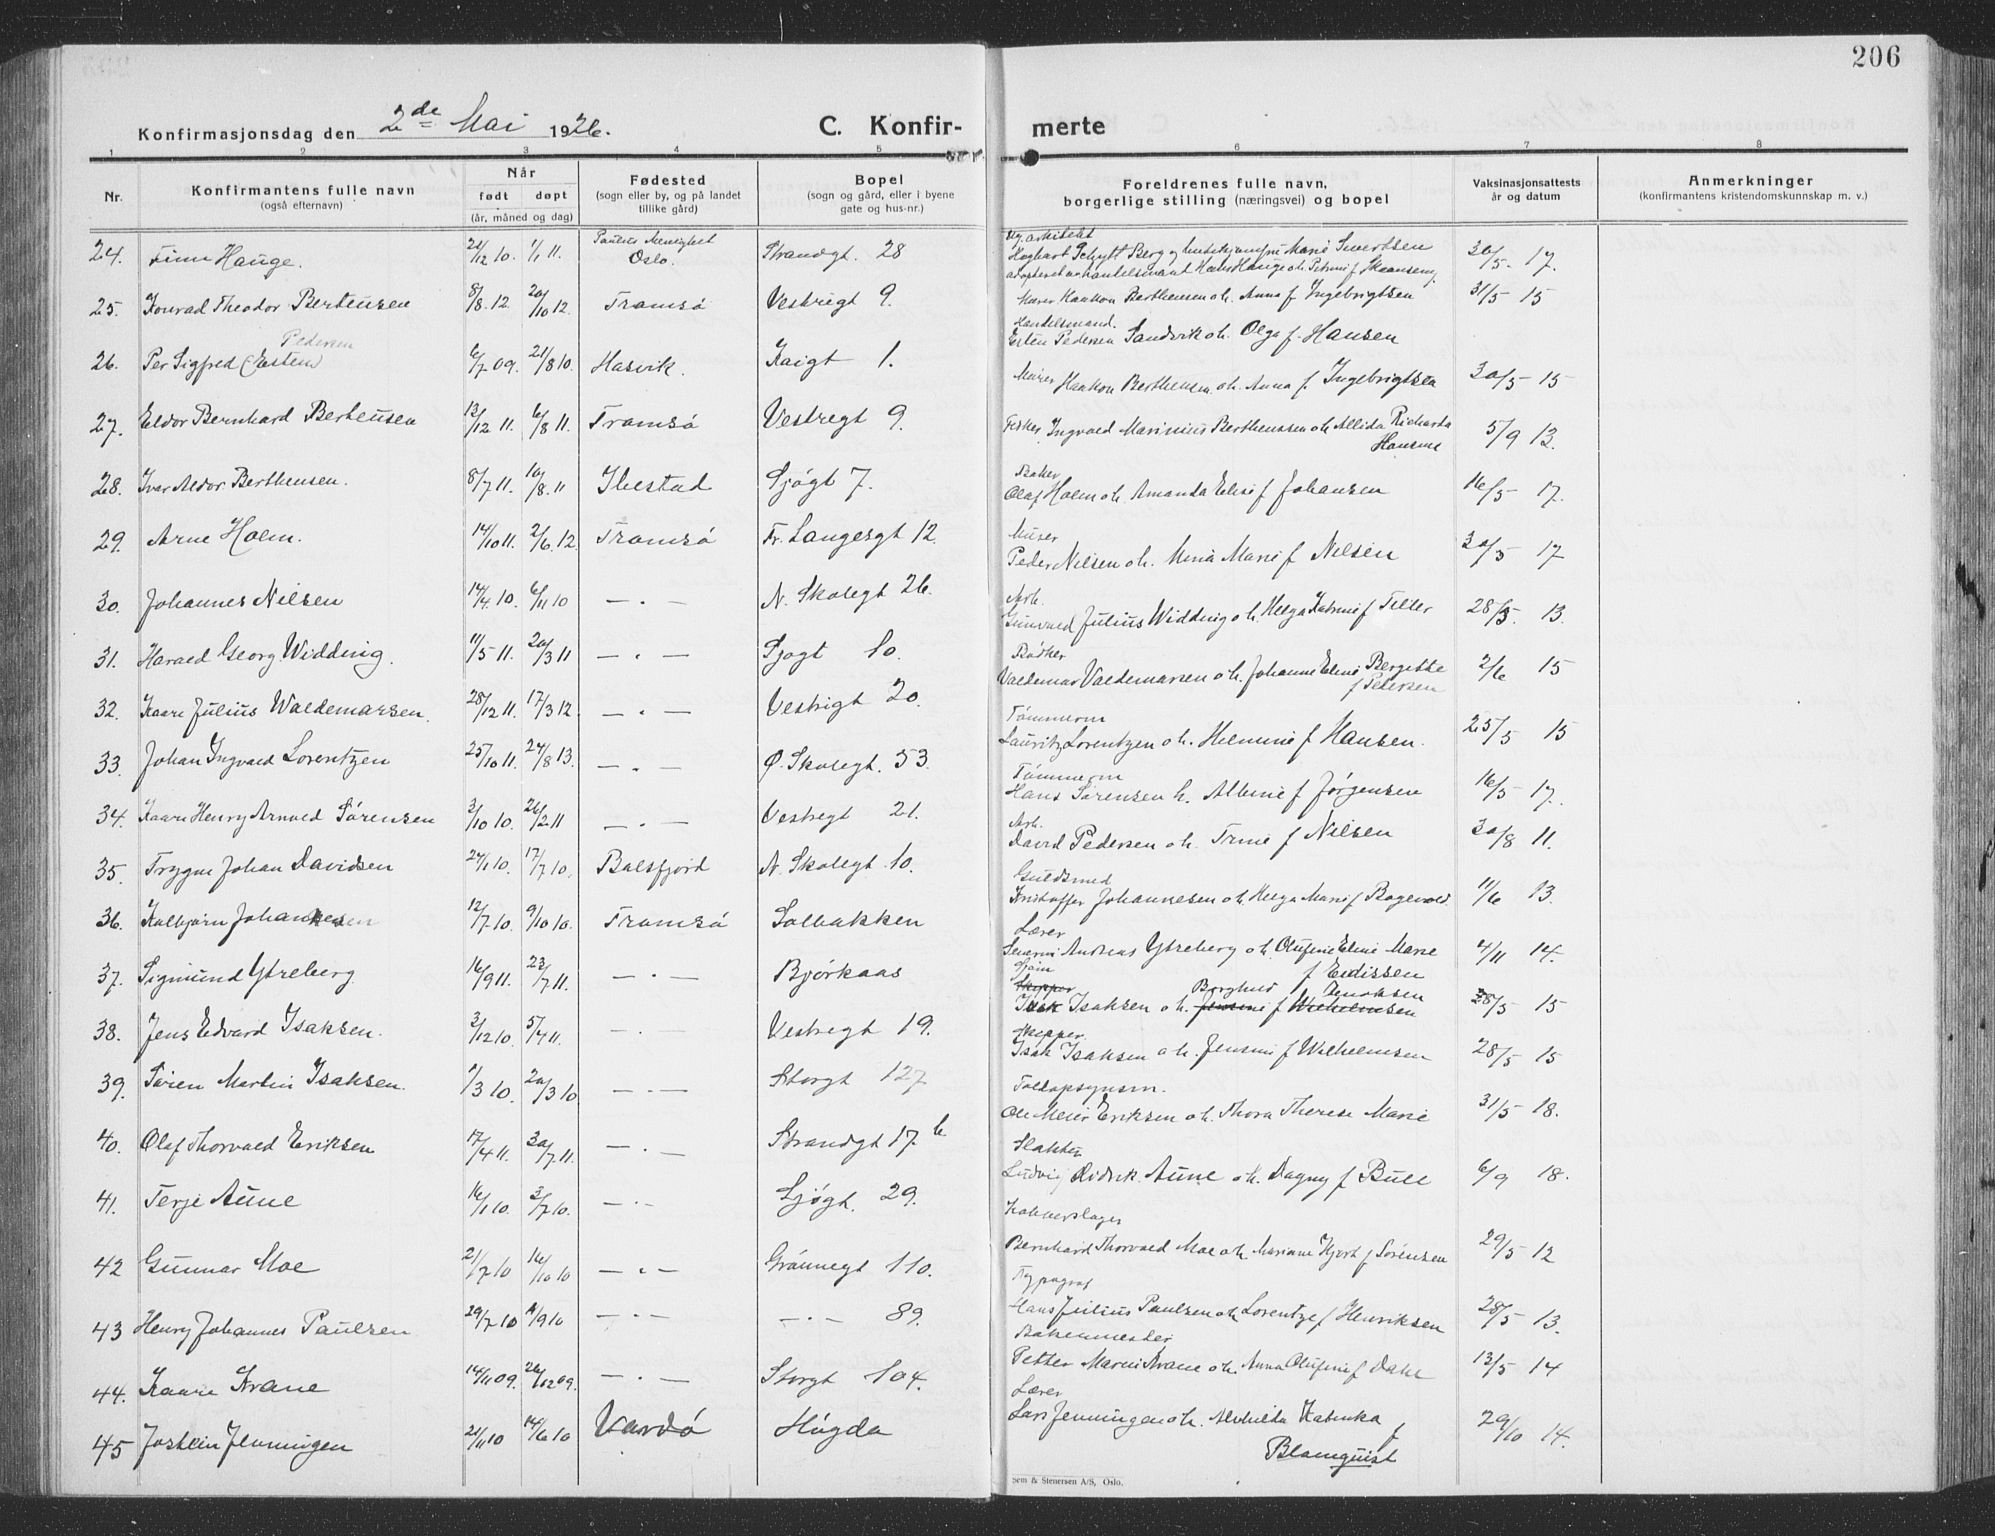 206
Konfirmasjonsdag den 2de Mai 1926. C. Konfir- merte
1 2 3 4 5 6 7 8
Nr. Konfirmantens fulle navn (også efternavn) Når født døpt (år, måned og dag) Fødested (sogn eller by, og på landet tillike gård) Bopel (sogn og gård, eller i byene gate og hus-nr.) Foreldrenes fulle navn, borgerlige stilling (næringsvei) og bopel Vaksinasjonsattests år og datum Anmerkninger (konfirmantens kristendomskunnskap m. v.)
24. Finn Hauge. 21/12 10. 1/1 11. Paulus Menighet Oslo. Strandgt. 28 30/5 - 17.
25. Konrad Theodor Bertensen 8/8. 12. 20/10 12. Tromsö Vestregt 9. Murer Haakon Berthensen o h. Anna f Ingebrigtsen 31/5 15
Pedersen
26. Per Sigfred (Esten) 6/7 09. 21/8 10. Hasvik. Kaigt 1. Handelsmand. Esten Pedersen Sandvik o h. Olga f. Hansen
Murer Haakon Berthensen o h. Anna f Ingebrigtsen 30/5 - 15
27. Eldor Bernhard Bertensen 13/12 11. 6/8 11. Tromsö Vestregt 9. Fisker Ingvald Marinius Berthenssen o h Allida Richarda Hansen 5/9 13.
28. Ivar Aldor Berthensen. 8/7 11. 10/8. 11 Ibestad Sjøgt 7. Baker Olaf Holm o h. Amanda Elise f Johansen 16/5 - 17.
29. Arne Holm. 14/10 11. 2/6. 12. Tromsö Fr. Langesgt 12. Murer Peder Nilsen o h. Mina Marie f Nilsen 30/5 - 17
30. Johannes Nilsen 14/4. 10. 6/11 10 — . — N. Skolegt 26. Arb. Gunvald Julius Widding o h. Helga Katrine f Tiller 28/5. 13.
31. Harald Georg Widding. 11/5 11. 20/3 11 — . — Sjøgt 10. Bödker Valdemar Valdemarsen o h. Johanne Eline Bergitte f Pedersen 2/6 15
32. Kaare Julius Waldemarsen. 28/12 11. 17/3 12. — . — Vestregt 20. Tömmerm Lauritz Lorentzen o h. Helmine f Hansen. 25/5 15
33. Johan Ingvald Lorentzen 25/10 11. 24/8 13. — . — Ø. Skolegt. 53. Tömmerm Hans Sörensen h. Albine f Jørgensen 16/5 - 17.
34. Kaare Henry Arnold Sørensen 3/10 10. 26/2 11 — . — Vestregt 21. Arb. David Pedersen o h. Trine f Nilsen 30/8 11.
35. Trygve Johan Davidsen 24/1 10. 17/7 10. Balsfjord N. Skolegt 10. Guldsmed Kristoffer Johannesen o h Helga Marie f Bogevold. 11/6 13.
36. Kolbjørn Johannesen 12/7 10. 9/10 10. Tromsö Solbakken Lærer Severin Andreas Ytreberg o h. Olufine Eline Marie f Eidissen 4/11 14.
37. Sigmund Ytreberg 16/9 11. 23/7 11. — . — Bjørkaas Sjöm Skipper Isak Isaksen o h. Jensine Borghild f Wilhelmsen Jenoksen 28/5 15
38. Jens Edvard Isaksen. 3/12 10. 5/4 11. — . — Vestregt 19. Skipper Isak Isaksen o h. Jensine f Wilhelmsen 28/5 15
39. Sören Martin Isaksen. 1/3 10. 20/3 10 — . — Storgt 127 Toldopsynsm. Ole Meier Eriksen o h. Thora Therese Marie 31/5 - 18.
40. Olaf Thorvald Eriksen 17/4 11. 30/7 11. — . — Strandgt 17. b Slakter Ludvig Didrik Aune o h. Dagny f Bull 6/9 18.
41. Terje Aune 16/1 10. 3/7 10. — . — Sjøgt. 29. Kobberslager Bernhard Thorvald Moe o h Mariane Hjort f Sörensen 29/5 12
42 Gunnar Moe 21/7 10 16/10 10 — . — Grönnegt 110. Typograf Hans Julius Paulsen o h Lorentze f Henriksen 28/5 13.
43 Henry Johannes Paulsen 29/7 10 4/9 10 — . — — . — 89. Bakermester Petter Marin Krane o h. Anna Olufine f Dahl 13/5 14
44. Kaare Krane 14/11 09. 26/12 09. — . — Storgt 104. Lærer Lars Jenningen o h. Alvhilda Katinka f Blomquist 29/10 14.
45 Jostein Jenningen 21/11 10 14/6 10 Vardö Högda
Sem & Stenersen A/S, Oslo.